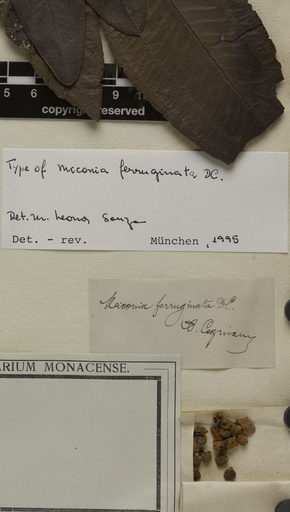 5 6 9 1
copyright reserved
Type of Miconia ferruginata DC.
Det. M. Leonor Souza
Det. - rev. München, 1995
Miconia ferruginata DC.
A. Cogniaux
ARIUM MONACENSE.